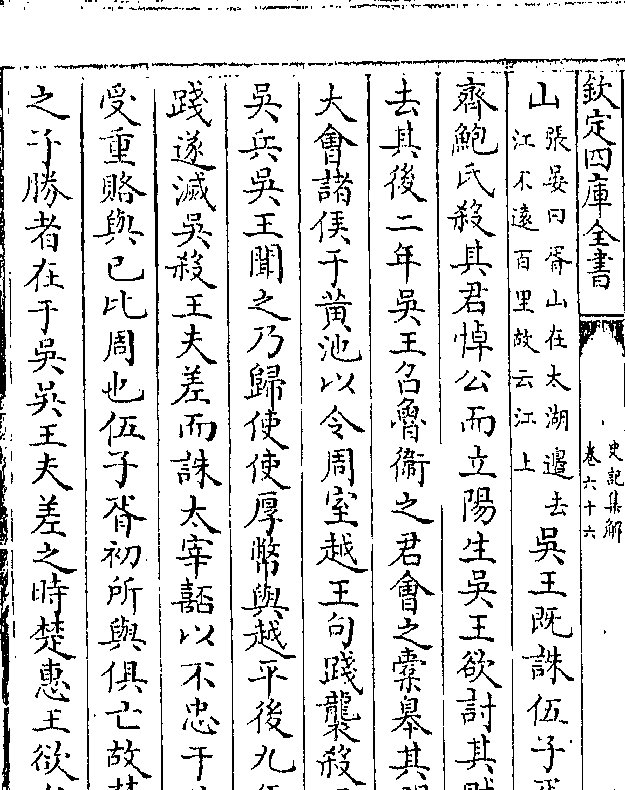 欽定四庫全書
史記集解
卷六十六
山張晏曰胥山在太湖邉去江不逺百里故云江上吳王既誅伍子胥
齊鮑氏殺其君悼公而立陽生吳王欲討其賊
去其後二年吳王召魯衞之君會之槖臯其明
大會諸侯于黄池以令周室越王句踐襲殺
吳兵吳王聞之乃歸使使厚幣與越平後九年
踐遂滅吳殺王夫差而誅太宰嚭以不忠于
受重賂與已比周也伍子胥初所與俱亡故
之子勝者在于吳吳王夫差之時楚惠王欲